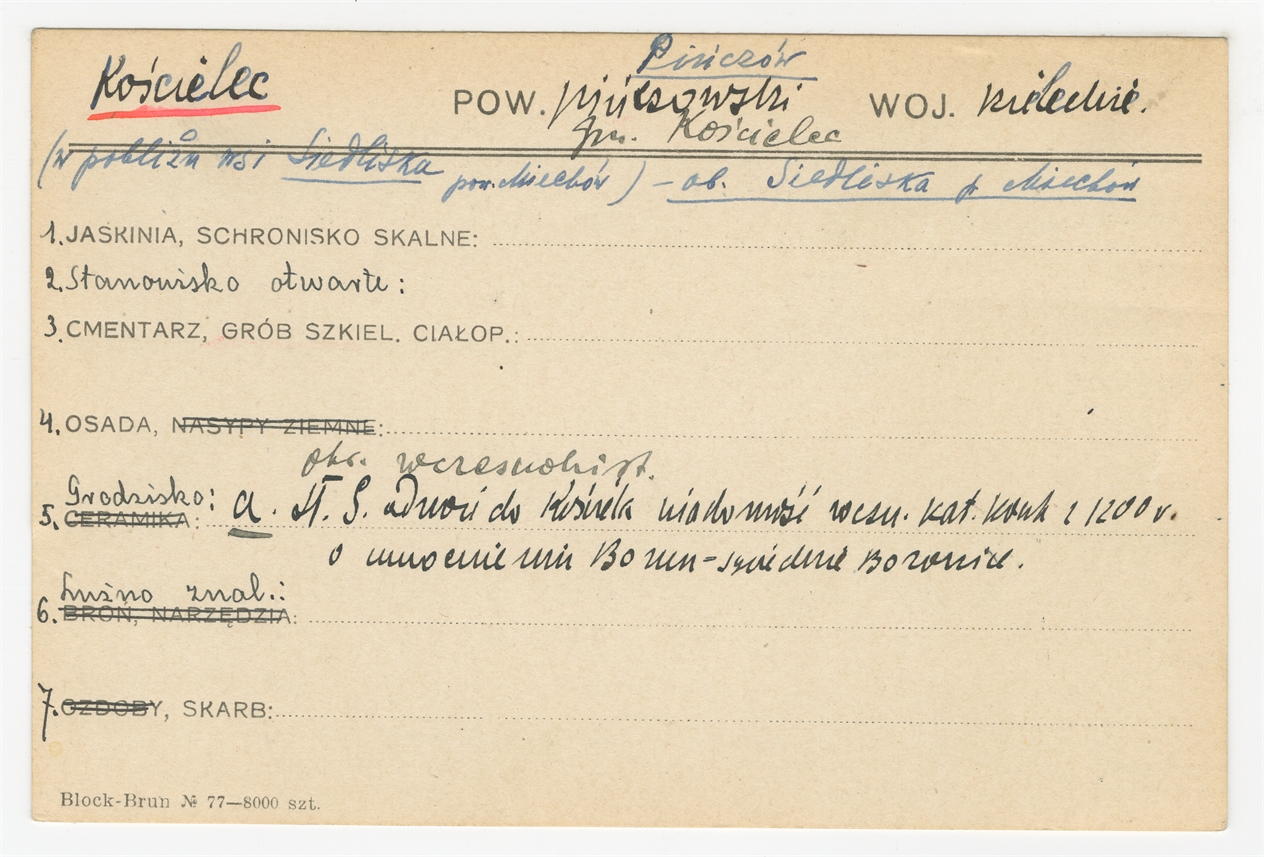 Pińczów
Kościelec POW. pińczowski WOJ. kieleckie.
gm. Kościelec
(w pobliżu wsi Siedliska pow. Miechów) – ob. Siedliska p Miechów
1. JASKINIA, SCHRONISKO SKALNE:
2. Stanowisko otwarte:
3. CMENTARZ, GRÓB SZKIEL. CIAŁOP.:
4. OSADA, NASYPY ZIEMNE:
okr. wczesnohist.
Grodzisko: a. St. S. odnosi do wiadomość wczsn. kat. z 1200 r.
5. CERAMIKA:
o umocnieniu
Luźno znal.:
6. BROŃ, NARZĘDZIA:
7. OZDOBY, SKARB:
Block-Brun № 77—8000 szt.